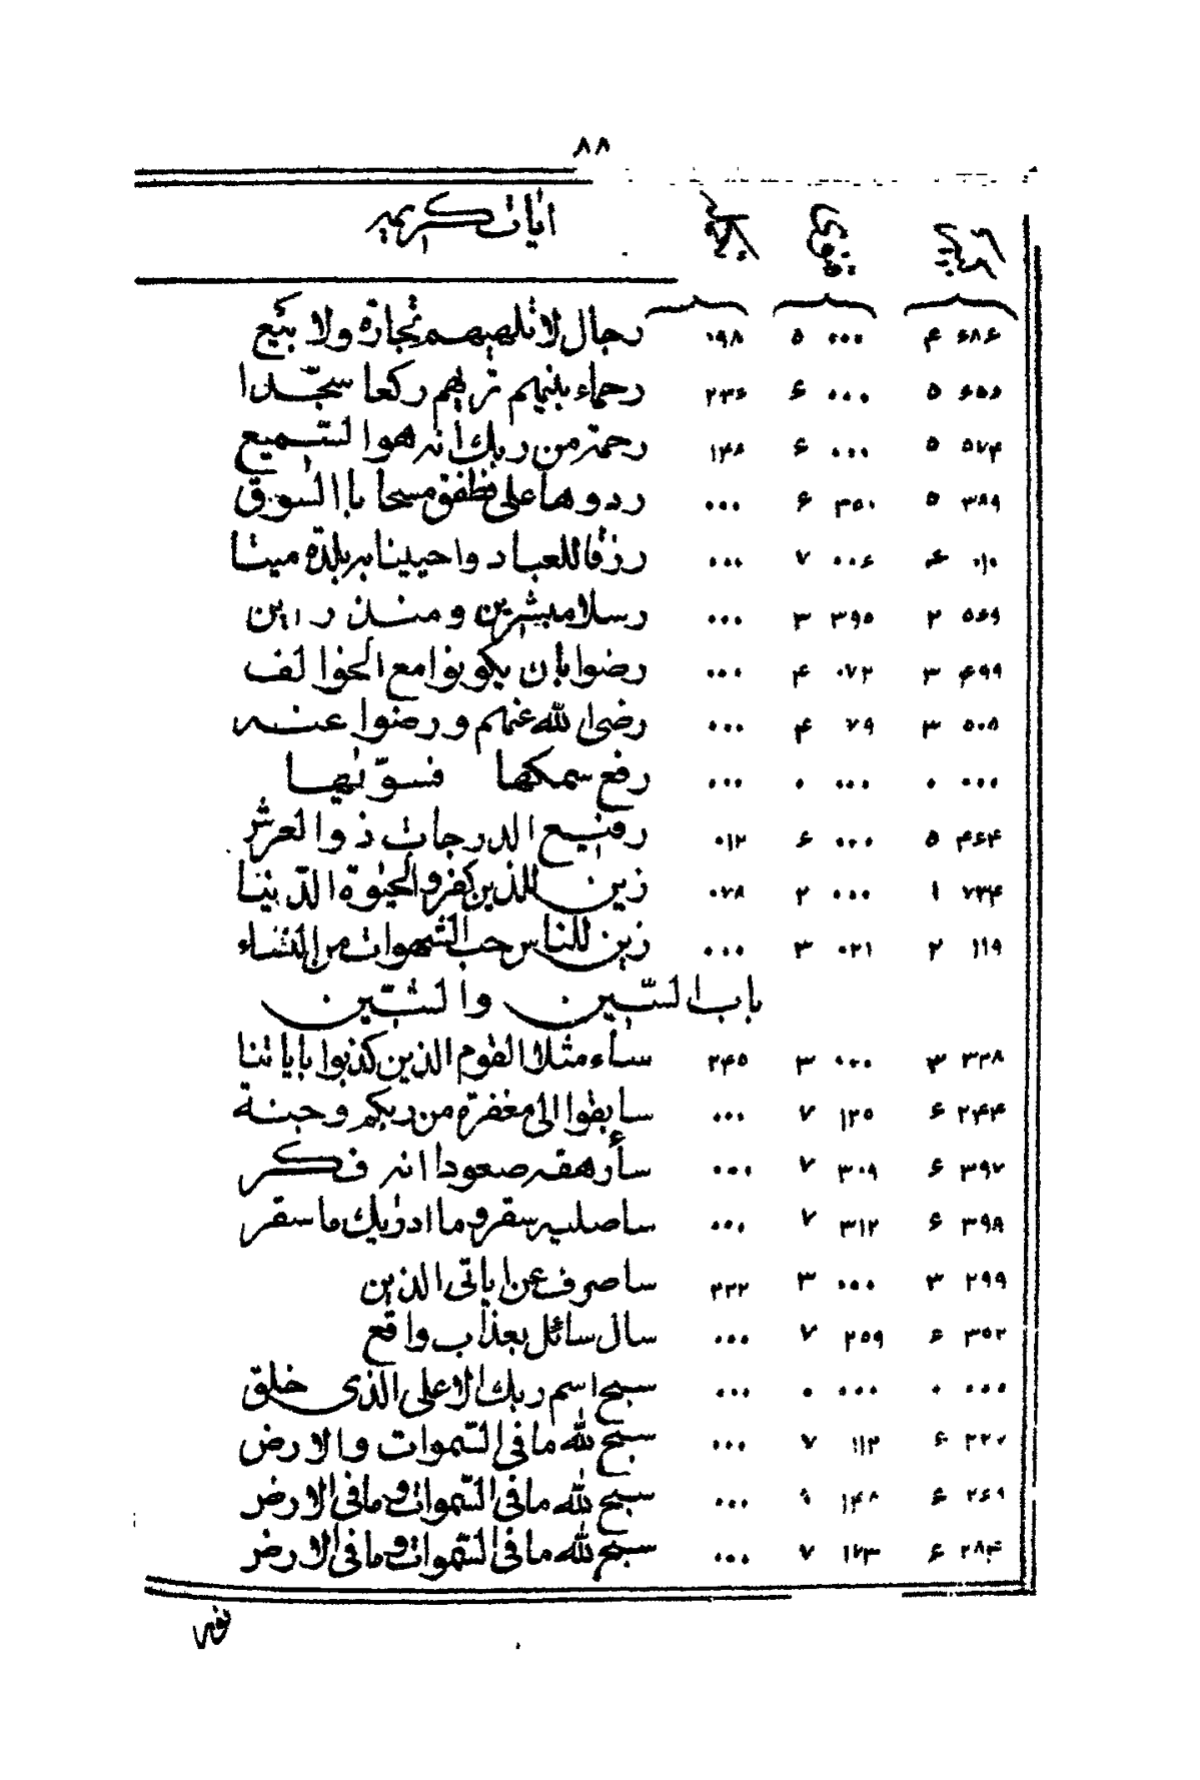 ٨٨
ایات کریمه
۴ ۶۸۶ ۵ ۰۰۰ ۰۹۸ رجال لا تلهیهم تجارة ولا بیع
۵ ۶۵۶ ۶ ۰۰۰ ۲۳۶ رحماء بینهم تریهم رکعا سجّدا
۵ ۵۷۴ ۶ ۰۰۰ ۱۴۸ رحمة من ربك انه هو السّمیع
۵ ۳۸۹ ۶ ۳۵۰ ۰۰۰ ردوها علی فطفق مسحا باالسّوق
۶ ۰۱۰ ۷ ۰۰۶ ۰۰۰ رزقا للعباد واحیینا به بلدة میتا
۲ ۵۶۹ ۳ ۳۹۵ ۰۰۰ رسلا مبشرین ومنذرین
۳ ۴۹۹ ۴ ۰۷۲ ۰۰۰ رضوا بان یکونوا مع الخوالف
۳ ۵۰۸ ۴ ۷۹ ۰۰۰ رضی الله عنهم ورضوا عنه
۰ ۰۰۰ ۰ ۰۰۰ ۰۰۰ رفع سمکها فسوّیها
۵ ۴۶۴ ۶ ۰۰۰ ۰۱۲ رفیع الدرجات ذوالعرش
۱ ۷۳۴ ۲ ۰۰۰ ۰۷۸ زین للذین کفروا الحیوة الدّنیا
۲ ۱۱۹ ۳ ۰۲۱ ۰۰۰ زین للناس حب الشهوات من النساء
باب السّین والشّین
۳ ۳۳۸ ۳ ۰۰۰ ۲۴۵ ساء مثلا القوم الذین کذبوا بایاتنا
۶ ۲۴۴ ۷ ۱۲۵ ۰۰۰ سابقوا الی مغفرة من ربکم وجنة
۶ ۳۹۷ ۷ ۳۰۹ ۰۰۰ سأرهقه صعودا انه فکر
۶ ۳۹۸ ۷ ۳۱۲ ۰۰۰ ساصلیه سقر وما ادریك ما سقر
۳ ۲۹۹ ۳ ۰۰۰ ۲۲۲ ساصرف عن ایاتی الذین
۶ ۳۵۲ ۷ ۲۵۹ ۰۰۰ سال سائل بعذاب واقع
۰ ۰۰۰ ۰ ۰۰۰ ۰۰۰ سبح اسم ربك الاعلی الذی خلق
۶ ۲۲۷ ۷ ۱۱۲ ۰۰۰ سبح لله ما فی السّموات والارض
۶ ۲۶۹ ۹ ۱۴۸ ۰۰۰ سبح لله ما فی السّموات وما فی الارض
۶ ۲۸۴ ۷ ۱۷۳ ۰۰۰ سبح لله ما فی السّموات وما فی الارض